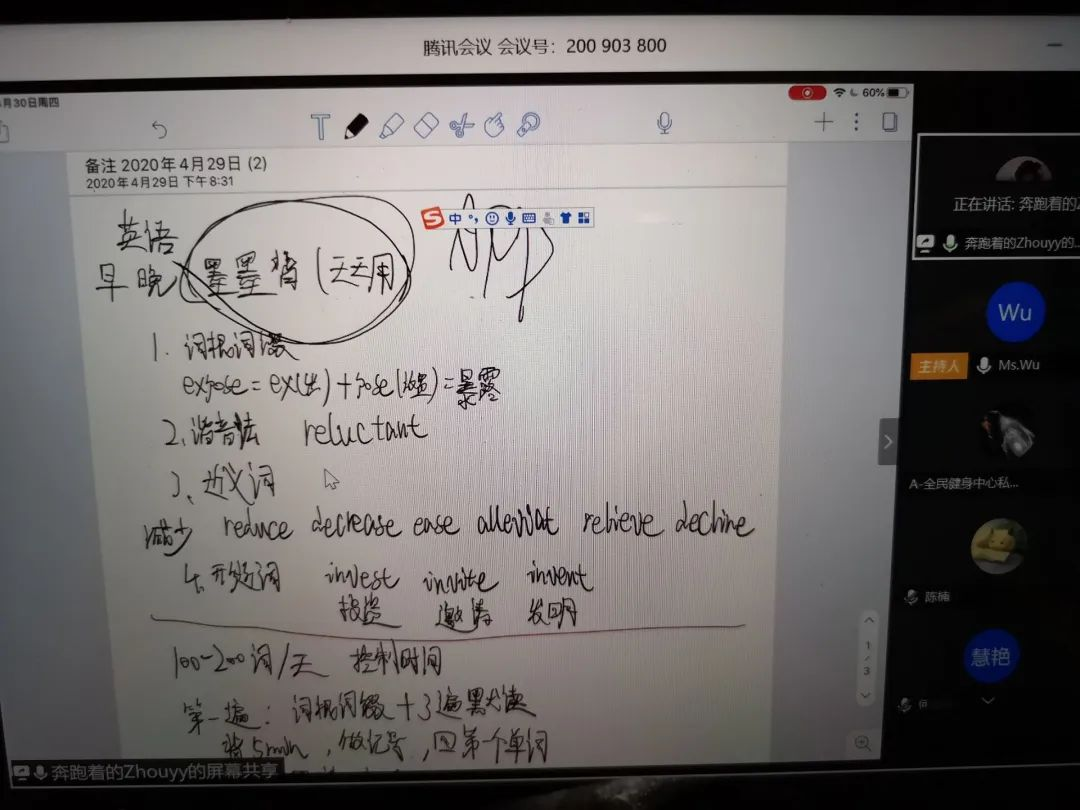 腾讯会议 会议号：200 903 800
月30日周四
60%
备注 2020年4月29日 (2)
2020年4月29日 下午8:31
中
英语
早晚 墨墨背 (天天用
APP
1. 词根词缀
expose = ex(出) + pose(放置) = 暴露
2、谐音法 reluctant
3、近义词
减少 reduce decrease ease alleviat relieve decline
4. 形近词 invest invite invent
投资 邀请 发明
100-200词/天 控制时间
第一遍: 词根词缀 + 3遍默读
将5min, 做记号, 回第一个单词
1/3
奔跑着的Zhouyy的屏幕共享
正在讲话: 奔跑着的Z
奔跑着的Zhouyy的...
Wu
主持人 Ms.Wu
A-全民健身中心私...
陈楠
慧艳